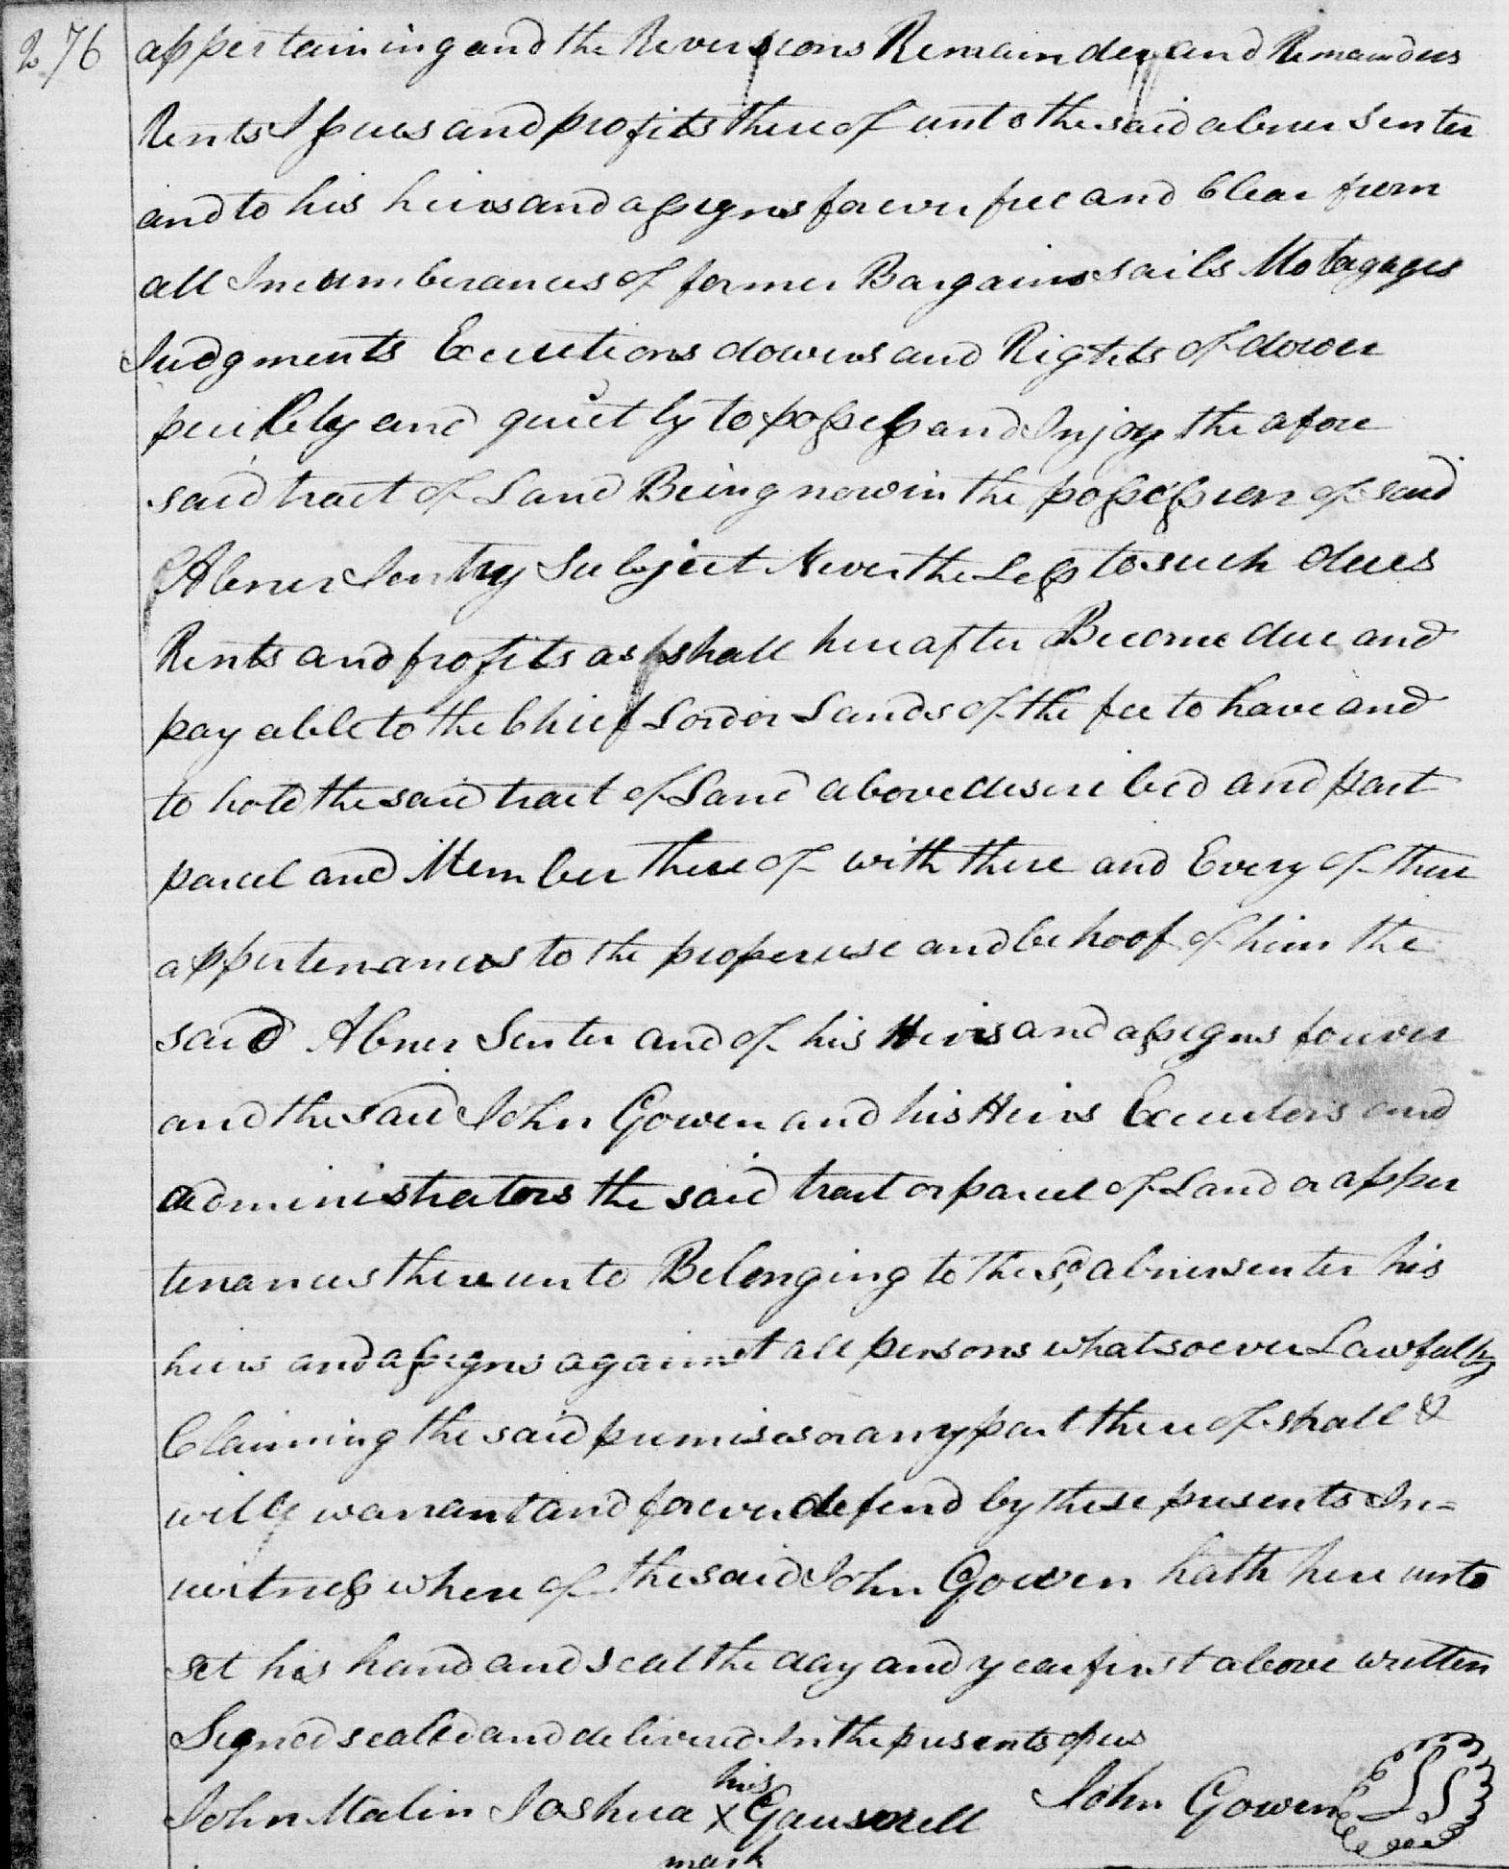 276
appertaining and the Reversions Remainder and Remainders
Rents Issues and profits there of unto the said abner Senter
and to his heirs and assigns forever free and Clear from
all Incumberances of former Bargains sails Motagages
Judgments Executions dowers and Rights of dower
and quietly to possess and Injoy the afore
said tract of Land Being now in the possession of said
Abner Sentry Subject Never the Less to such dues
Rents and profits as shall here after Become due and
pay able to the Chief Lord or Lands of the fee to have and
to hold the said tract of Land above described and part
parcel and Member there of with there and Every of there
appertenances to the proper use and behoof of him the
said Abner Senter and of his Heirs and assigns forever
and the said John Gowen and his Heirs Executors and
administrators the said tract or parcel of Land or apper
tenances there unto Belonging to the sd, abner senter his
heirs and assigns against all persons whatsoever Lawfully
Claiming the said premises or any part there of shall &
will warrant and forever defend by these presents In=
witness where of the said John Gowen hath here unto
set his hand and seal the day and year first above written
Signed sealed and delivered In the presents of us
his
John Malin Joshua X Gauswell John Gowen LS
mark